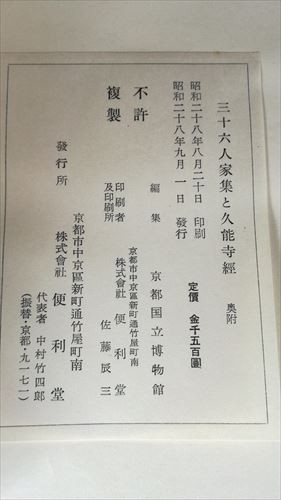 三十六人家集と久能寺經 奥附
昭和二十八年八月二十日 印刷
昭和二十八年九月一日 發行
定價 金千五百圓
編集 京都国立博物館
不許複製
印刷者及印刷所
京都市中京區新町通竹屋町南
株式會社 便利堂
佐藤辰三
發行所
京都市中京區新町通竹屋町南
株式會社 便利堂
代表者 中村竹四郎
(振替・京都・九一七一)